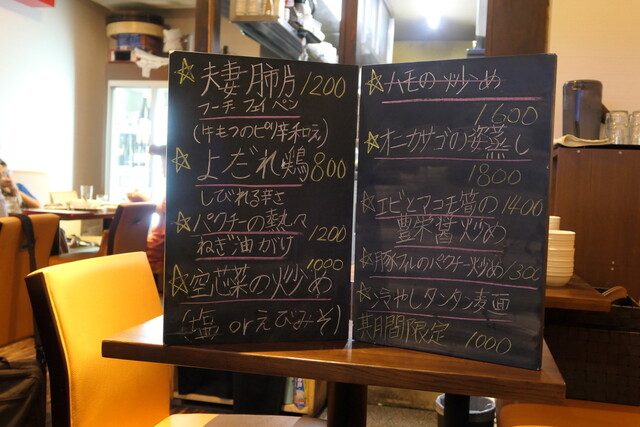 ☆夫妻肺片 1200
フーチーフェイペン
(牛もつのピリ辛和え)
☆よだれ鶏 800
しびれる辛さ
☆パクチーの熱々 1200
ねぎ油がけ
☆空芯菜の炒め 1000
(塩 orえびみそ)
☆ハモの炒め
1600
☆オニカサゴの姿蒸し
1800
☆エビとマコモ筍の 1400
豊栄醤炒め
☆豚フルのパクチー炒め 1300
☆冷やしタンタン麺
期間限定 1000